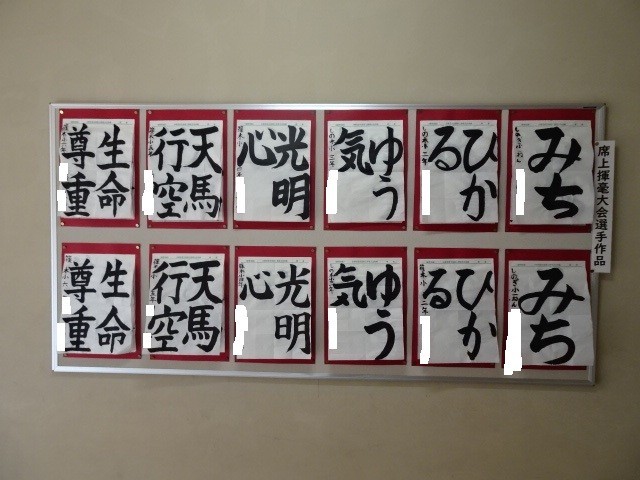 席上揮毫大会選手作品
みち
ひかる
ゆう気
光明心
天馬行空
生命尊重
みち
しのぎ小一ねん
ひかる
ゆう気
光明心
天馬行空
生命尊重